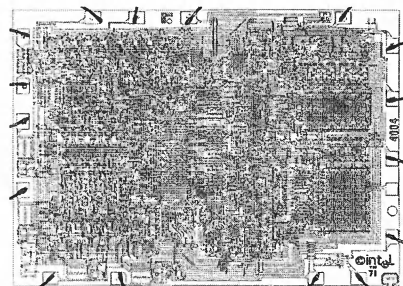 4004
©intel
71